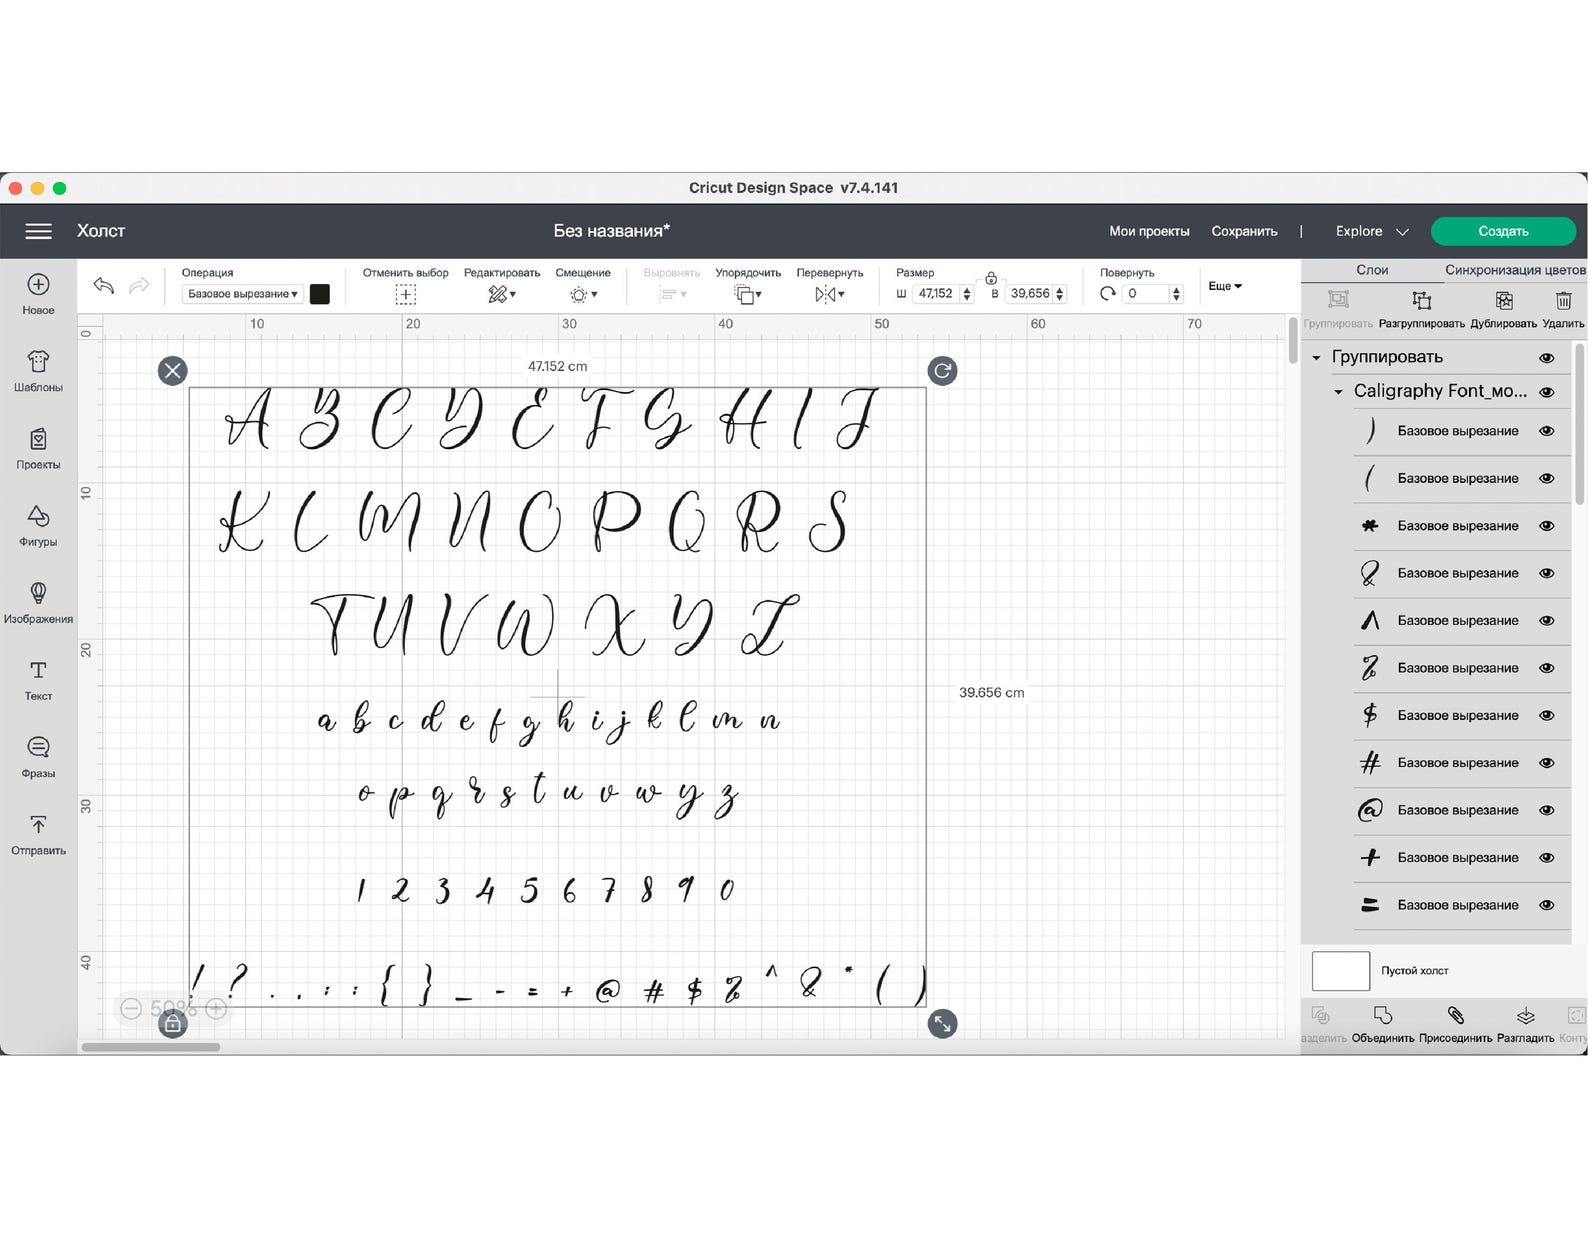 Cricut Design Space v7.4.141
Холст
Без названия*
Мои проекты
Сохранить
|
Explore
Создать
Операция
Базовое вырезание
Отменить выбор
Редактировать
Смещение
Выровнять
Упорядочить
Перевернуть
Размер
Ш 47,152
В 39,656
Повернуть
0
Еще
Слои
Синхронизация цветов
Группировать
Разгруппировать
Дублировать
Удалить
Новое
Шаблоны
Проекты
Фигуры
Изображения
Текст
Фразы
Отправить
10 20 30 40 50 60 70
0
10
20
30
40
47.152 cm
A B C D E F G H I J
K L M N O P Q R S
T U V W X Y Z
a b c d e f g h i j k l m n
o p q r s t u v w y z
1 2 3 4 5 6 7 8 9 0
! ? . , ; : { } _ - = + @ # $ % ^ & * ( )
39.656 cm
50%
Группировать
Caligraphy Font_мо...
) Базовое вырезание
( Базовое вырезание
* Базовое вырезание
& Базовое вырезание
^ Базовое вырезание
% Базовое вырезание
$ Базовое вырезание
# Базовое вырезание
@ Базовое вырезание
+ Базовое вырезание
= Базовое вырезание
Пустой холст
азделить
Объединить
Присоединить
Разгладить
Конту